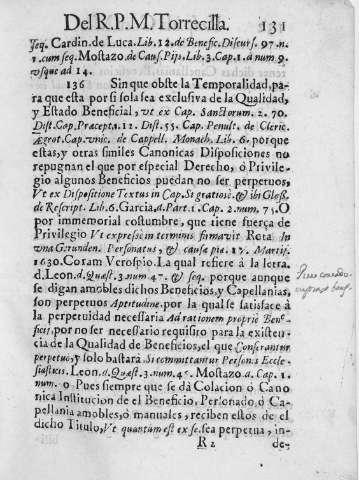 Del R.P.M. Torrecilla. 131
seq. Cardin. de Luca. Lib. 12. de Benefic. Discurs. 97. n.
1. cum seq. Mostazo. de Caus. Pijs. Lib. 3. Cap. 1. à num 9.
vsque ad 14.
136 Sin que obste la Temporalidad, pa-
ra que esta por si sola sea exclusiva de la Qualidad,
y Estado Beneficial, vt ex Cap. Sanctorum. 2. 70.
Dist. Cap. Præcepta. 12. Dist. 55. Cap. Penult. de Cleric.
Ægrot. Cap. vnic. de Cappell. Monach. Lib. 6. porque
estas, y otras similes Canonicas Disposiciones no
repugnan el que por especial Derecho, ò Privile-
gio algunos Beneficios puedan no ser perpetuos,
Vt ex Dispositione Textus in Cap. Si gratiosè. & ibi Gloss.
de Rescript. Lib. 6. Garcia. d. Part. 1. Cap. 2. num. 75. O
por immemorial costumbre, que tiene fuerça de
Privilegio Vt expressè in terminis firmavit Rota. In
vna Gerunden. Personatus, & causæ pia. 13. Martij.
1630. Coram Verospio. La qual refiere à la letra.
d. Leon. d. Quæst. 3. num. 47. & seq. porque aunque
se digan amobles dichos Beneficios, y Capellanias,
son perpetuos Aptitudine, por la qual se satisface à
la perpetuidad necessaria Ad rationem propriè Bene-
ficij, por no ser necessario requisito para la existen-
cia de la Qualidad de Beneficios, el que Conferantur
perpetuo, y solo bastarà Si committantur Personis Eccle-
siasticis. Leon. d. Quæst. 3. num. 45. Mostazo. d. Cap. 1.
num. o Pues siempre que se dà Colacion ò Cano
nica Institucion de el Beneficio, Personado, ò Ca-
pellania amobles, ò manuales, reciben estos de el
dicho Titulo, Vt quantum est ex se. sea perpetua, in-
R 2 de-